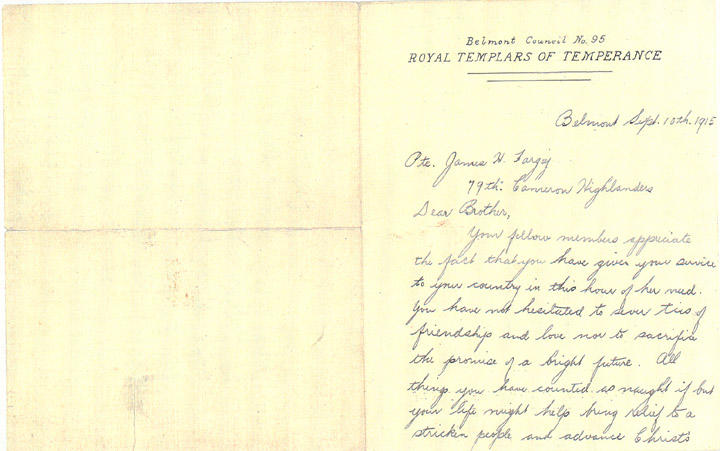 Belmont Council No. 95
ROYAL TEMPLARS OF TEMPERANCE
Belmont Sept. 10th. 1915
Pte. James H. Fargey
79th. Cameron Highlanders
Dear Brother,
Your fellow members appriciate
the fact that you have given your service
to your country in this hour of her need.
You have not hesitated to sever ties of
friendship and love nor to sacrifice
the promise of a bright future. All
things you have counted as naught if but
your life might help bring relief to a
stricken people and advance Christ's